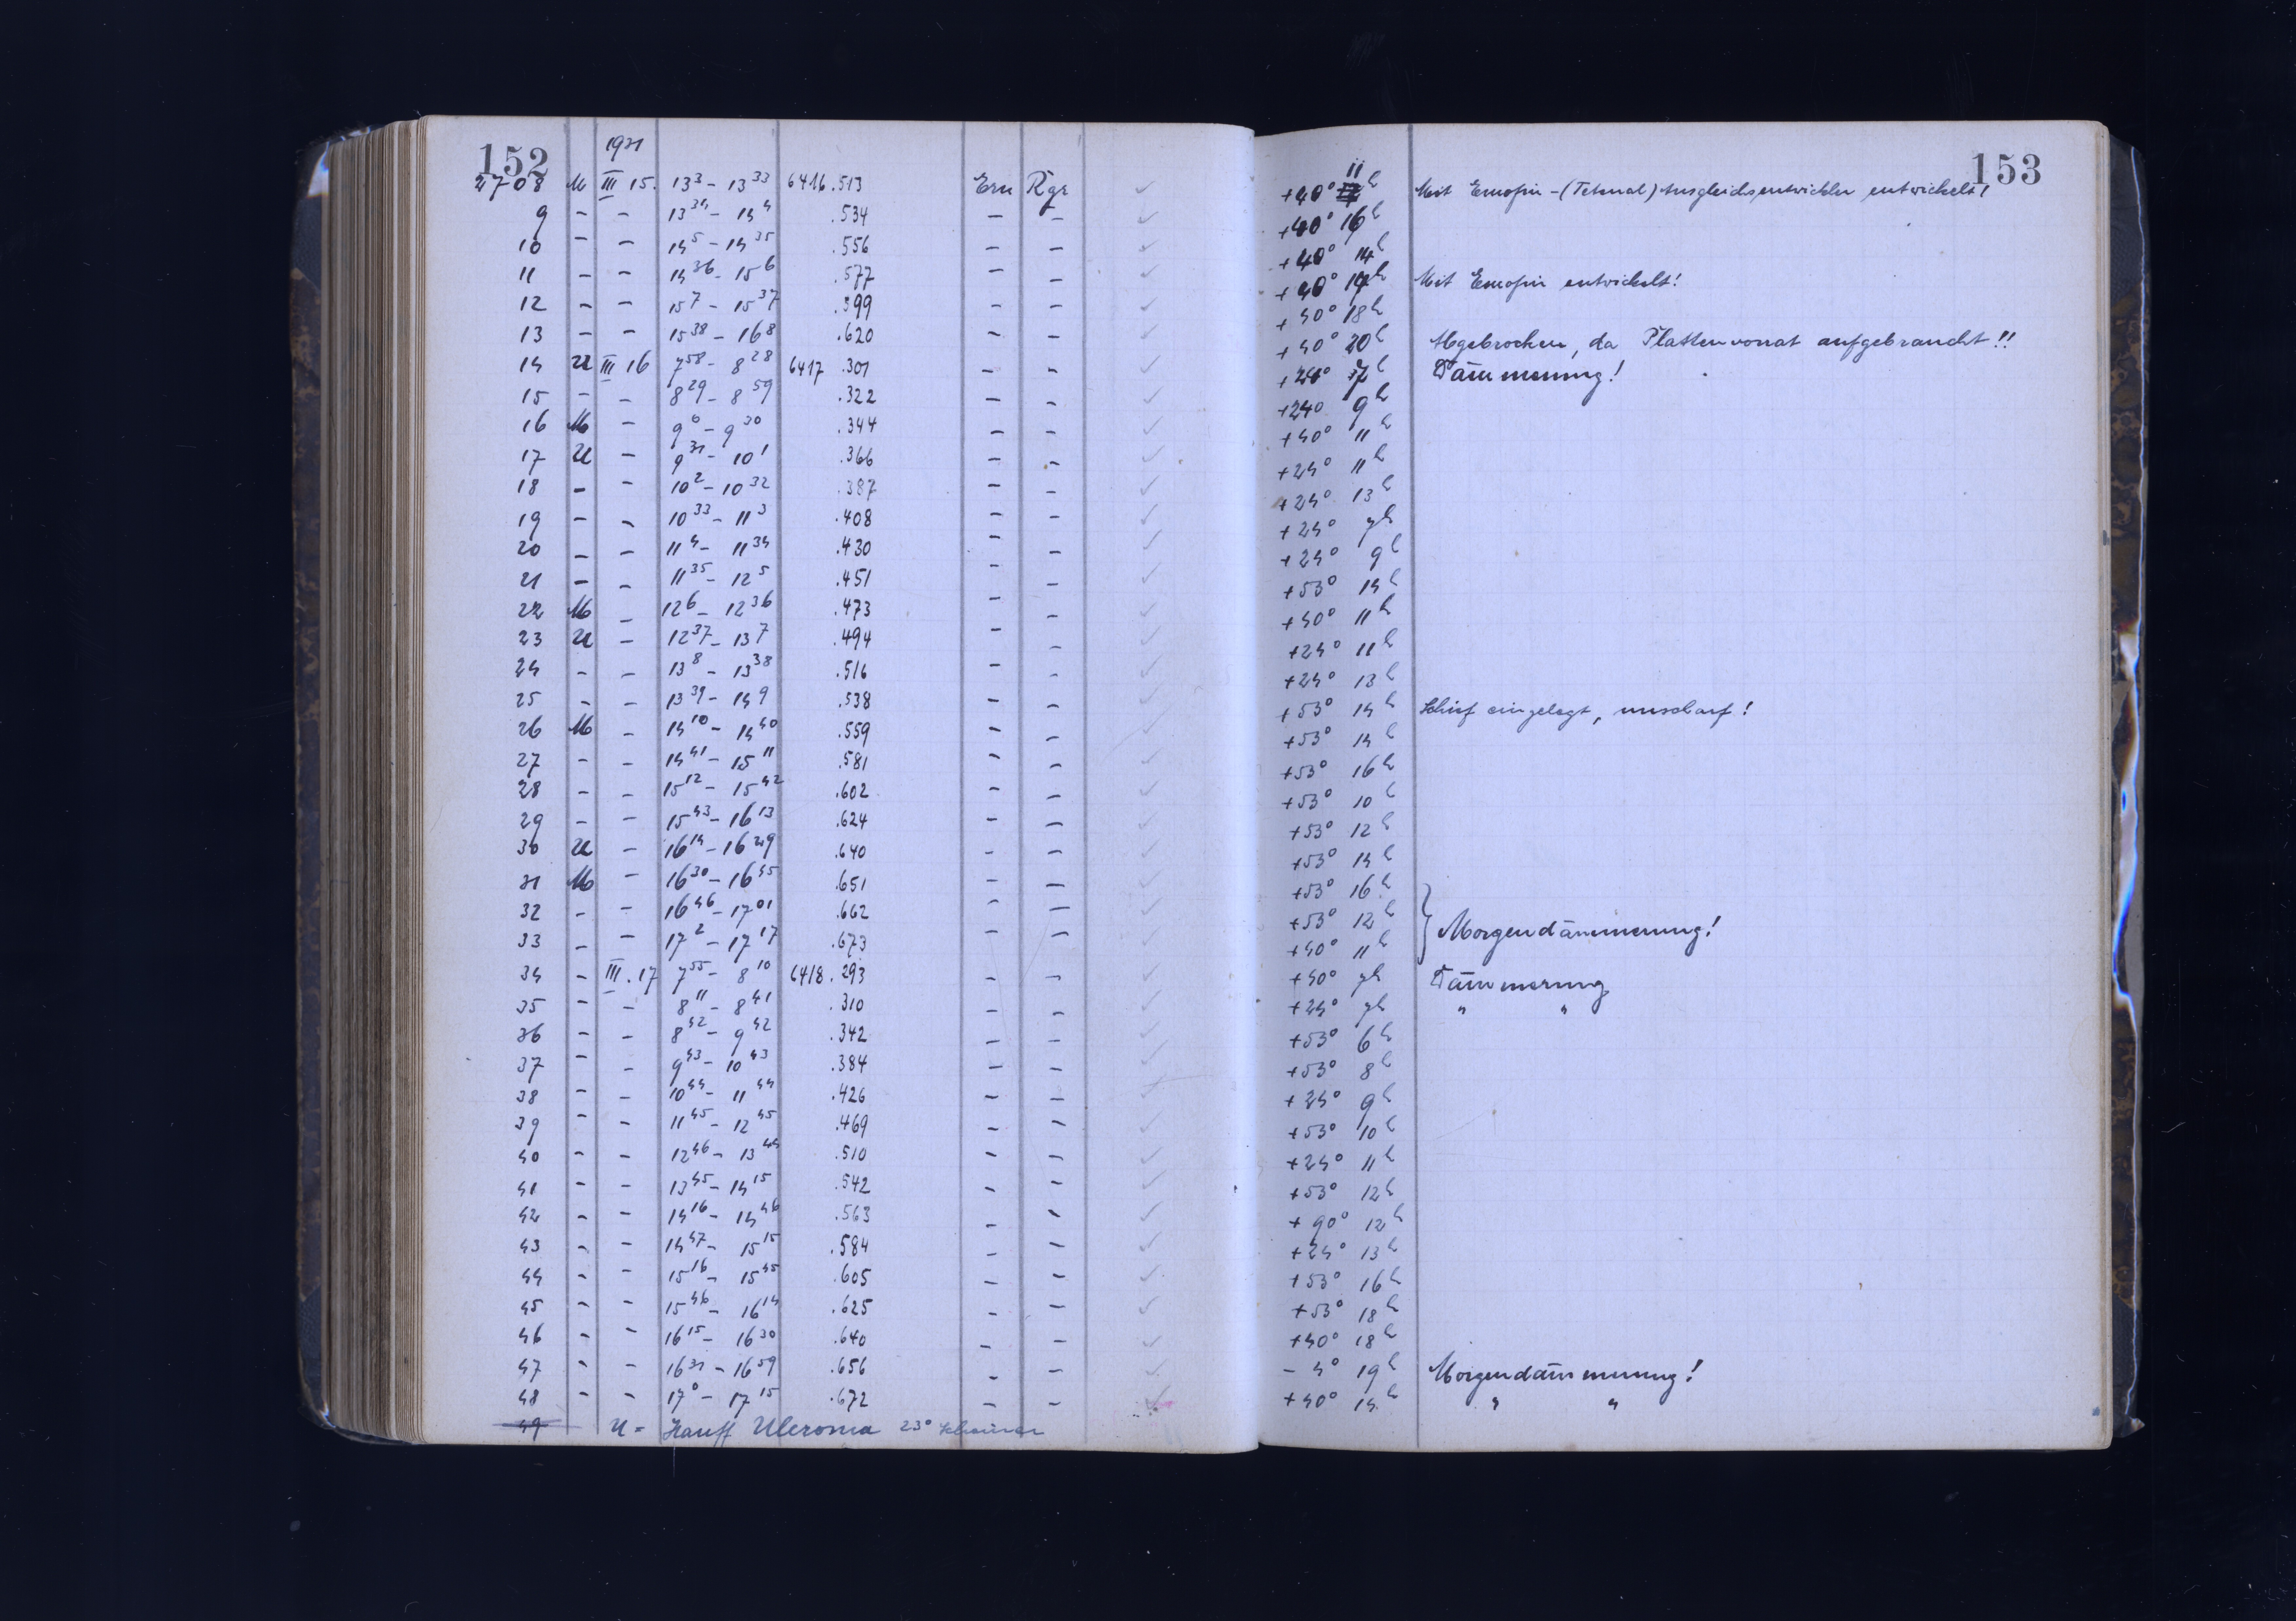 152 1931 153
2708 M III 15. 13³ – 13³³ 6416.513 Ern Rgr ✓ +40° 11ʰ Mit Emofin – (Tetenal) Ausgleichsentwickler entwickelt!
9 – – 13³⁴ – 14⁴ .534 – – ✓ +40° 16ʰ
10 – – 14⁵ – 14³⁵ .556 – – ✓ +40° 14ʰ
11 – – 14³⁶ – 15⁶ .577 – – ✓ +40° 19ʰ Mit Emofin entwickelt!
12 – – 15⁷ – 15³⁷ .599 – – ✓ +40° 18ʰ
13 – – 15³⁸ – 16⁸ .620 – – ✓ +40° 20ʰ Abgebrochen, da Plattenvorrat aufgebraucht!!
14 U III 16 7⁵⁸ – 8²⁸ 6417 .301 – – ✓ +24° 7ʰ Dämmerung!
15 – – 8²⁹ – 8⁵⁹ .322 – – ✓ +24° 9ʰ
16 M – 9⁰ – 9³⁰ .344 – – ✓ +40° 11ʰ
17 U – 9³¹ – 10¹ .366 – – ✓ +24° 11ʰ
18 – – 10² – 10³² .387 – – ✓ +24° 13ʰ
19 – – 10³³ – 11³ .408 – – ✓ +24° 7ʰ
20 – – 11⁴ – 11³⁴ .430 – – ✓ +24° 9ʰ
21 – – 11³⁵ – 12⁵ .451 – – ✓ +53° 14ʰ
22 M – 12⁶ – 12³⁶ .473 – – ✓ +40° 11ʰ
23 U – 12³⁷ – 13⁷ .494 – – ✓ +24° 11ʰ
24 – – 13⁸ – 13³⁸ .516 – – ✓ +24° 13ʰ
25 – – 13³⁹ – 14⁹ .538 – – ✓ +53° 14ʰ Schief eingelegt, unscharf!
26 M – 14¹⁰ – 14⁴⁰ .559 – – ✓ +53° 14ʰ
27 – – 14⁴¹ – 15¹¹ .581 – – ✓ +53° 16ʰ
28 – – 15¹² – 15⁴² .602 – – ✓ +53° 10ʰ
29 – – 15⁴³ – 16¹³ .624 – – ✓ +53° 12ʰ
30 U – 16¹⁴ – 16²⁹ .640 – – ✓ +53° 14ʰ
31 M – 16³⁰ – 16⁴⁵ .651 – – ✓ +53° 16ʰ
32 – – 16⁴⁶ – 17⁰¹ .662 – – ✓ +53° 12ʰ } Morgendämmerung!
33 – – 17² – 17¹⁷ .673 – – ✓ +40° 11ʰ
34 – III.17 7⁵⁵ – 8¹⁰ 6418.293 – – ✓ +40° 7ʰ Dämmerung
35 – – 8¹¹ – 8⁴¹ .310 – – ✓ +24° 7ʰ " "
36 – – 8⁴² – 9⁴² .342 – – ✓ +53° 6ʰ
37 – – 9⁴³ – 10⁴³ .384 – – ✓ +53° 8ʰ
38 – – 10⁴⁴ – 11⁴⁴ .426 – – ✓ +24° 9ʰ
39 – – 11⁴⁵ – 12⁴⁵ .469 – – ✓ +53° 10ʰ
40 – – 12⁴⁶ – 13⁴⁴ .510 – – ✓ +24° 11ʰ
41 – – 13⁴⁵ – 14¹⁵ .542 – – ✓ +53° 12ʰ
42 – – 14¹⁶ – 14⁴⁶ .563 – – ✓ +90° 12ʰ
43 – – 14⁴⁷ – 15¹⁵ .584 – – ✓ +24° 13ʰ
44 – – 15¹⁶ – 15⁴⁵ .605 – – ✓ +53° 16ʰ
45 – – 15⁴⁶ – 16¹⁴ .625 – – ✓ +53° 18ʰ
46 – – 16¹⁵ – 16³⁰ .640 – – ✓ +40° 18ʰ
47 – – 16³¹ – 16⁵⁹ .656 – – ✓ – 4° 19ʰ Morgendämmerung!
48 – – 17⁰ – 17¹⁵ .672 – – ✓ +40° 14ʰ " "
49 U = Hauff Ulcroma 23° Scheiner